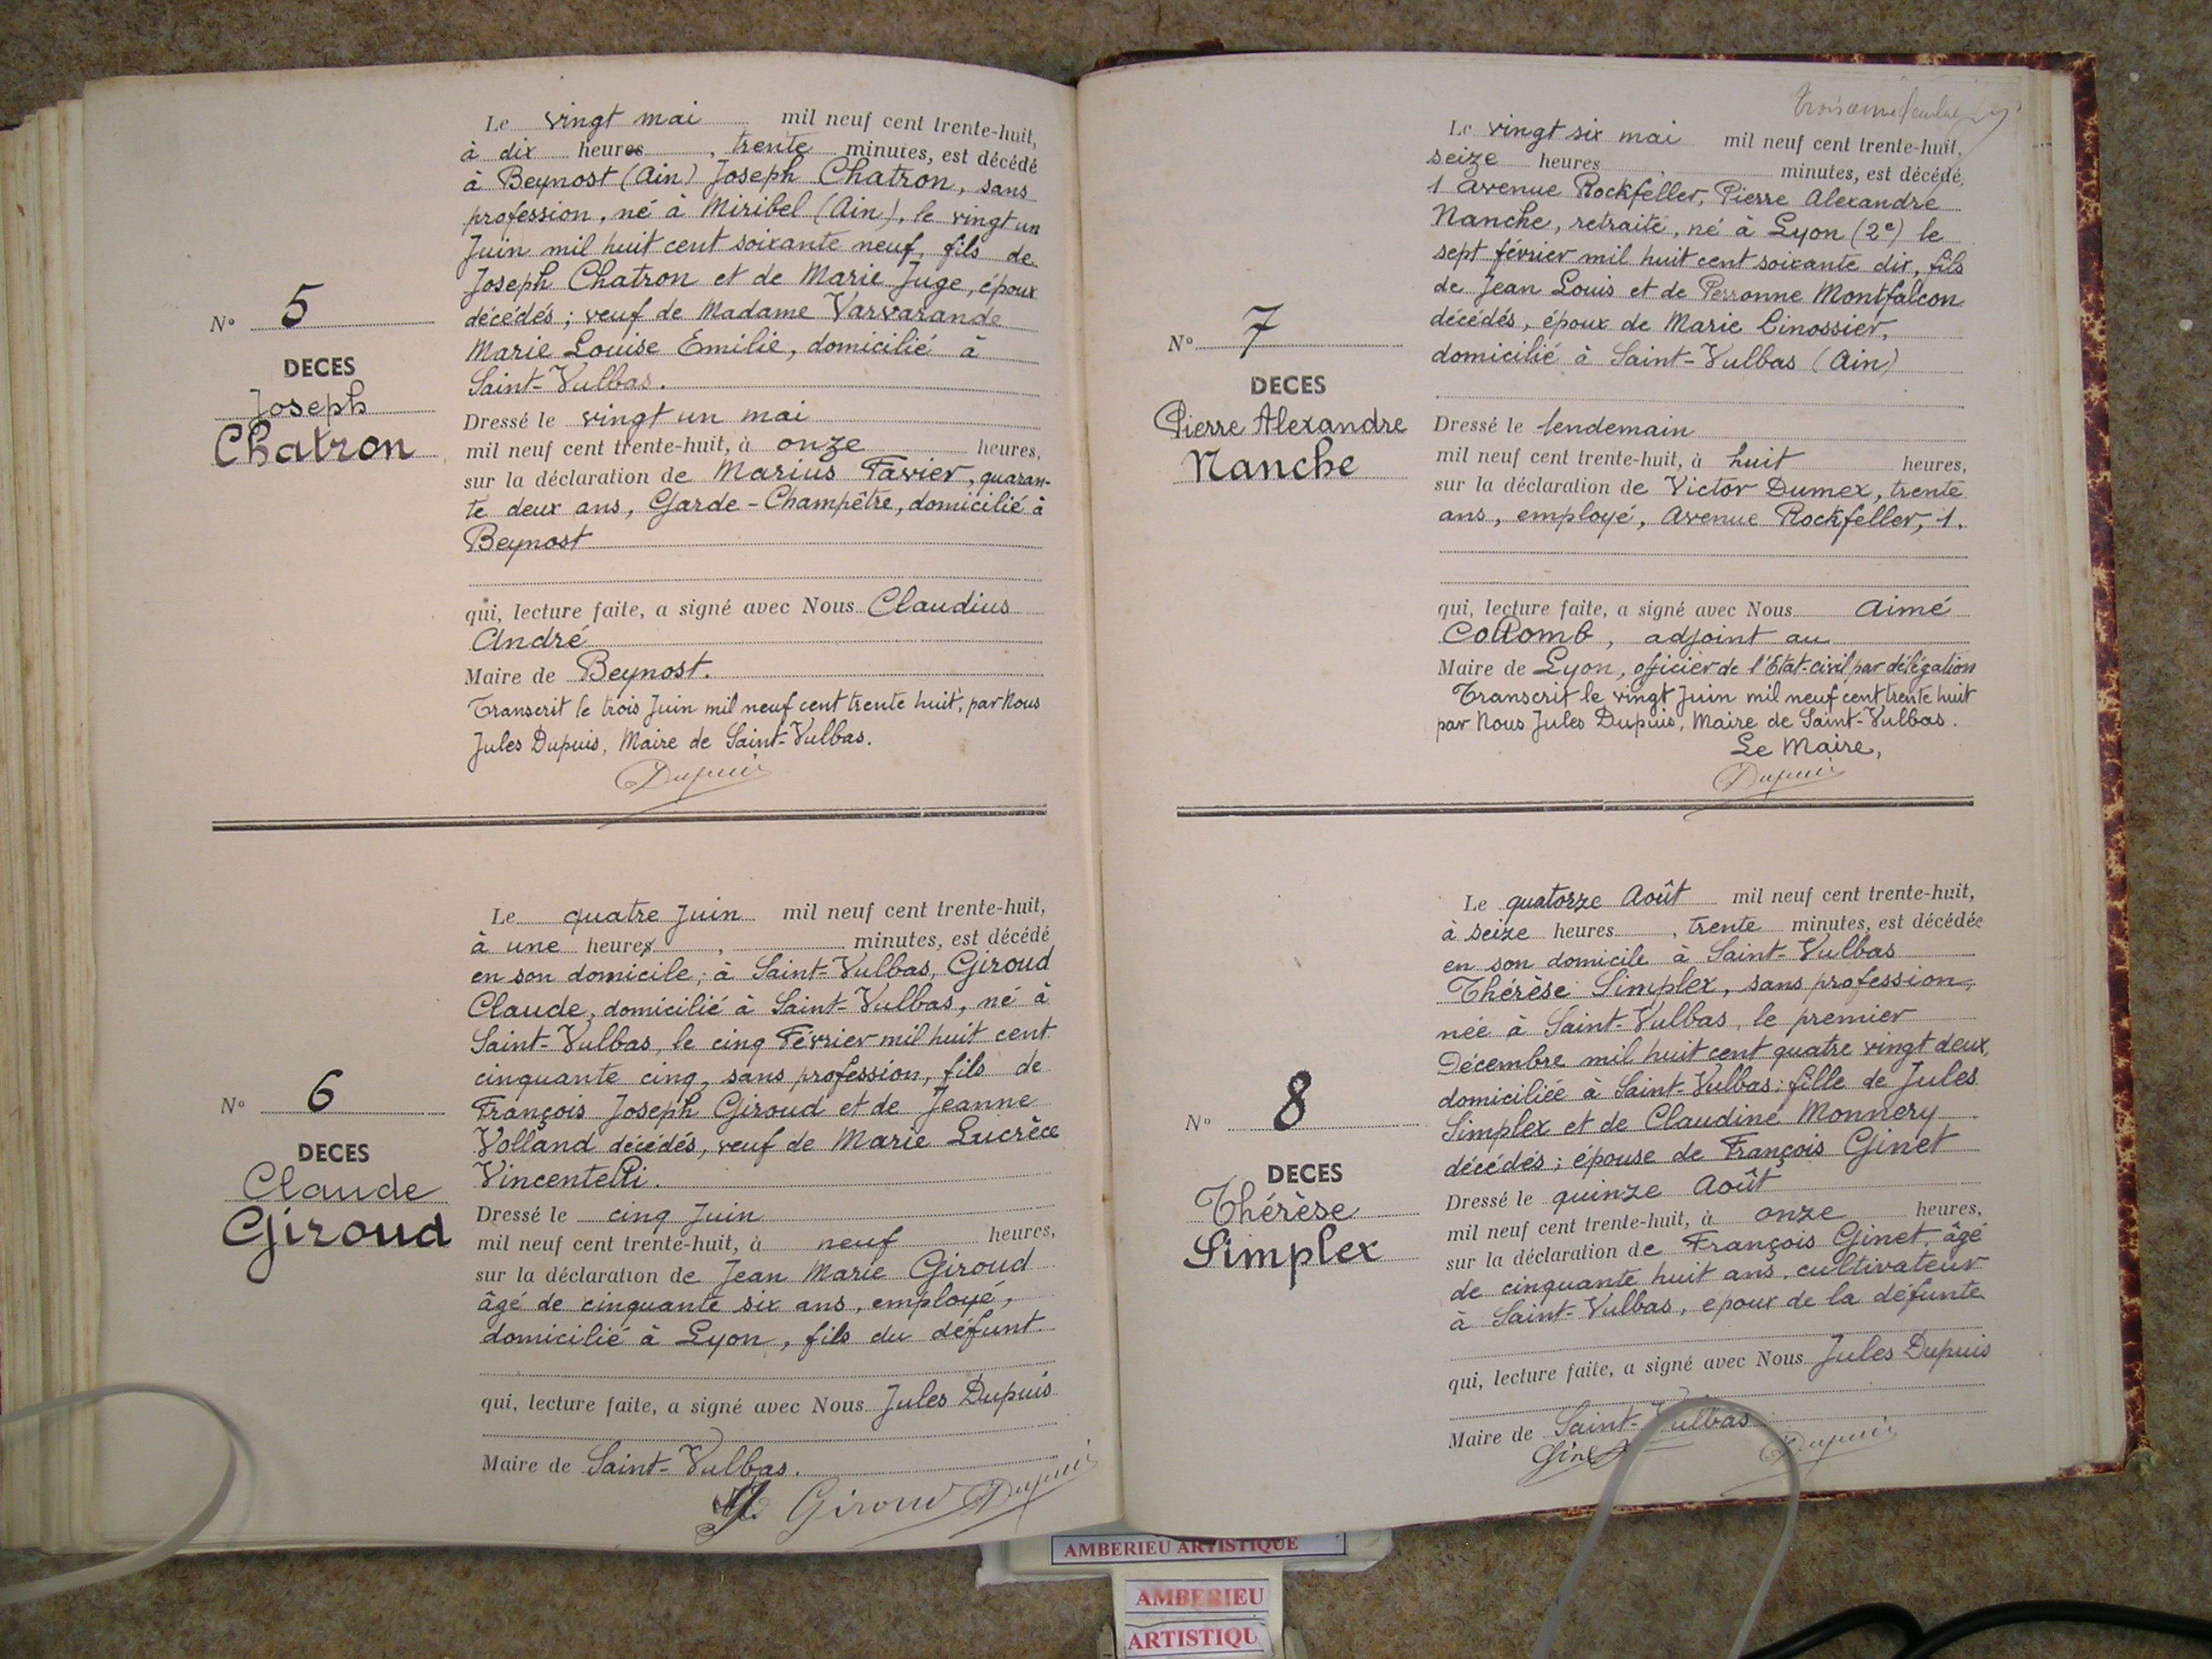 Le vingt mai mil neuf cent trente-huit,
à dix heures, trente minutes, est décédé
à Beynost (Ain) Joseph Chatron, sans
profession, né à Miribel (Ain), le vingt un
Juin mil huit cent soixante neuf, fils de
Joseph Chatron et de Marie Juge, époux
décédés; veuf de Madame Varvarande
Marie Louise Emilie, domicilié à
Saint-Vulbas.
N° 5
DECES
Joseph
Chatron
Dressé le vingt un mai
mil neuf cent trente-huit, à onze heures,
sur la déclaration de Marius Favier, quaran-
te deux ans, Garde-Champêtre, domicilié à
Beynost
qui, lecture faite, a signé avec Nous Claudius
André
Maire de Beynost.
Transcrit le trois Juin mil neuf cent trente huit, par Nous
Jules Dupuis, Maire de Saint-Vulbas.
Dupuis
Le quatre Juin mil neuf cent trente-huit,
à une heure, minutes, est décédé
en son domicile, à Saint-Vulbas, Giroud
Claude, domicilié à Saint-Vulbas, né à
Saint-Vulbas, le cinq Février mil huit cent
cinquante cinq, sans profession, fils de
François Joseph Giroud et de Jeanne
Volland décédés, veuf de Marie Lucrèce
Vincentelli.
N° 6
DECES
Claude
Giroud
Dressé le cinq Juin
mil neuf cent trente-huit, à neuf heures,
sur la déclaration de Jean Marie Giroud
âgé de cinquante six ans, employé,
domicilié à Lyon, fils du défunt
qui, lecture faite, a signé avec Nous Jules Dupuis
Maire de Saint-Vulbas.
Giroud Dupuis
Le vingt six mai mil neuf cent trente-huit,
seize heures minutes, est décédé,
1 Avenue Rockfeller, Pierre Alexandre
Nanche, retraité, né à Lyon (2e) le
sept février mil huit cent soixante dix, fils
de Jean Louis et de Perronne Montfalcon
décédés, époux de Marie Linossier,
domicilié à Saint-Vulbas (Ain)
N° 7
DECES
Pierre Alexandre
Nanche
Dressé le lendemain
mil neuf cent trente-huit, à huit heures,
sur la déclaration de Victor Dumex, trente
ans, employé, Avenue Rockfeller, 1.
qui, lecture faite, a signé avec Nous Aimé
Collomb, adjoint au
Maire de Lyon, officier de l'Etat-civil par délégation
Transcrit le vingt Juin mil neuf cent trente huit
par Nous Jules Dupuis, Maire de Saint-Vulbas.
Le Maire,
Dupuis
Le quatorze Août mil neuf cent trente-huit,
à seize heures, trente minutes, est décédée
en son domicile à Saint-Vulbas
Thérèse Simplex, sans profession,
née à Saint-Vulbas, le premier
Décembre mil huit cent quatre vingt deux,
domiciliée à Saint-Vulbas; fille de Jules
Simplex et de Claudine Monnery
décédés; épouse de François Ginet
N° 8
DECES
Thérèse
Simplex
Dressé le quinze Août
mil neuf cent trente-huit, à onze heures,
sur la déclaration de François Ginet, âgé
de cinquante huit ans, cultivateur
à Saint-Vulbas, epoux de la défunte
qui, lecture faite, a signé avec Nous Jules Dupuis
Maire de Saint-Vulbas
Ginet Dupuis
AMBERIEU ARTISTIQUE
AMBERIEU
ARTISTIQU